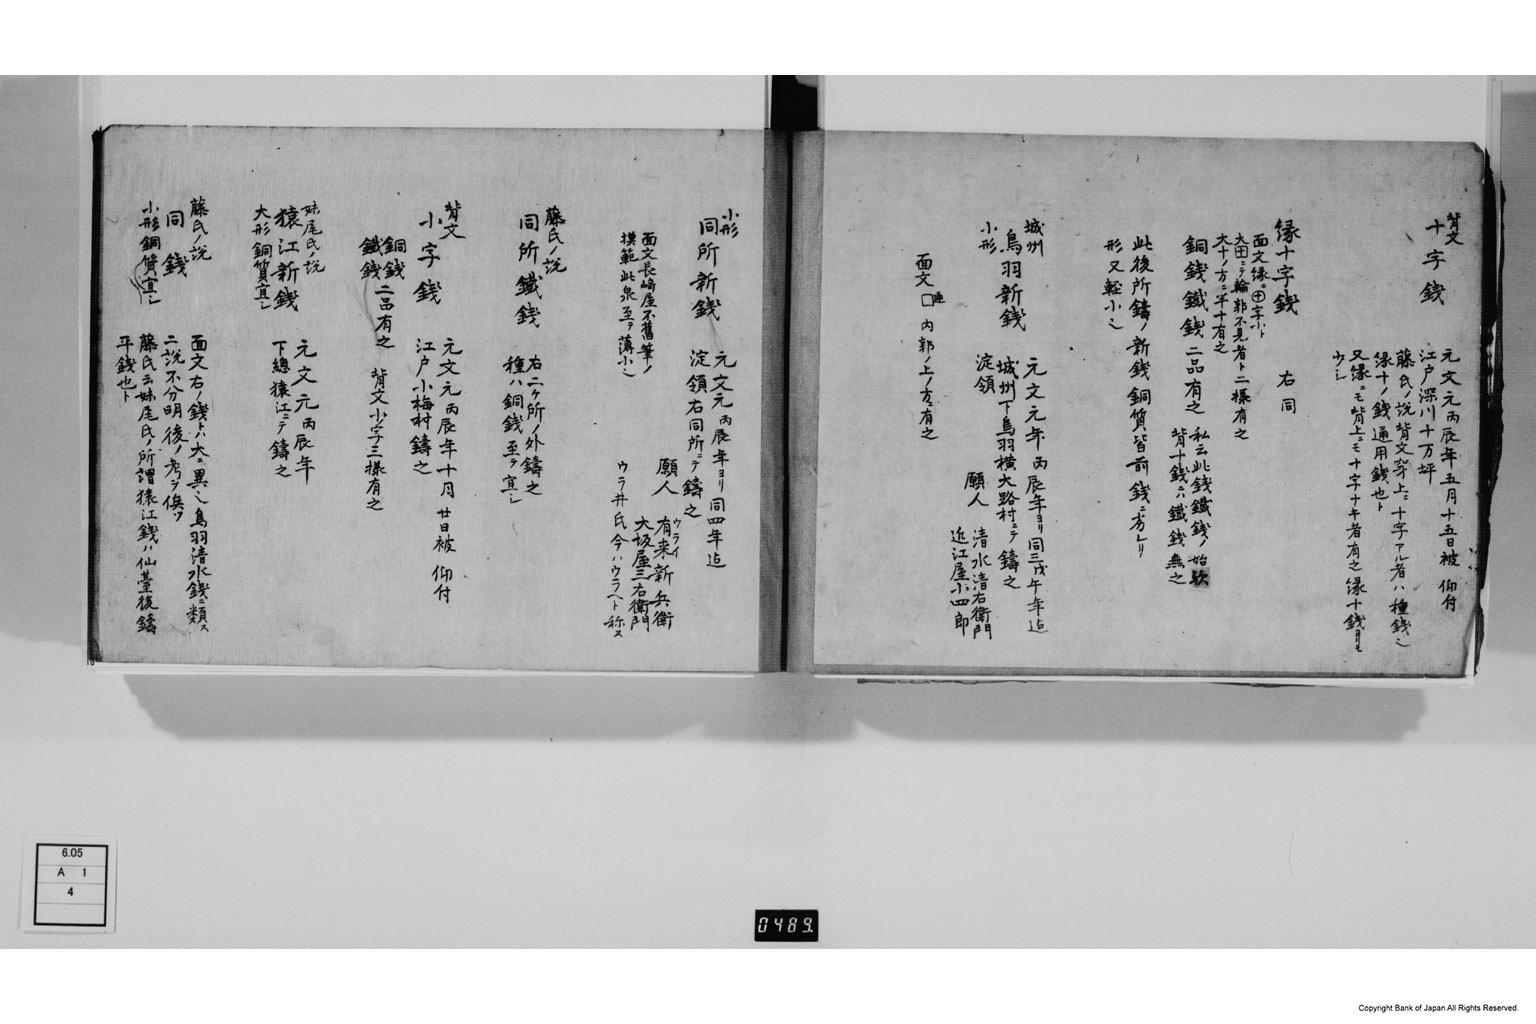 背文
十字錢
元文元丙辰年五月十五日被 仰付
江戸深川十万坪
藤氏ノ説背文穿上ニ十字アル者ハ種錢也
縁十ノ錢通用錢也ト
又縁ニモ背上ニモ十字ナキ者有之縁十錢ヨリモ
ウシ
縁十字錢 右同
面文縁ニ㊉字小ト
大田ニテ輪郭不見者ト二樣有之
大十ノ方ニ平十有之
銅錢鐵錢二品有之
私云此錢鐵錢ノ始歟
背十錢ニハ鐵錢無之
此後所鑄ノ新錢銅質皆前錢ニ劣レリ
形又輕小也
城州
烏羽新錢
小形
元文元年丙辰年ヨリ同三戊午年迠
城州下烏羽横大路村ニテ鑄之
淀領
願人 清水清右衛門
近江屋小四郎
面文 内郭ノ上ノ方ニ有之
小形
同所新錢
元文元丙辰年ヨリ同四年迠
淀領右同所ニテ鑄之
願人
ウライ
有来新兵衛
大坂屋三右衛門
ウラ井氏今ハウラヘト称ス
面文長崎屋不舊筆ノ
模範此泉至テ薄小也
藤氏ノ説
同所鐵錢
右二ヶ所ノ外鑄之
種ハ銅錢至テ宜シ
背文
小字錢
元文元丙辰年十月廿日被 仰付
江戸小梅村鑄之
銅錢
鐵錢 二品有之
背文小字三樣有之
妹尾氏ノ説
猿江新錢
大形銅質宜シ
元文元丙辰年
下總猿江ニテ鑄之
藤氏ノ説
同錢
小形銅質宜シ
面文右ノ錢トハ大ニ異也烏羽清水錢ニ類ス
二説不分明後ノ考ヲ俟ツ
藤氏云妹尾氏ノ所謂猿江錢ハ仙臺後鑄
平錢也ト
6.05
A 1
4
0489
Copyright Bank of Japan All Rights Reserved.